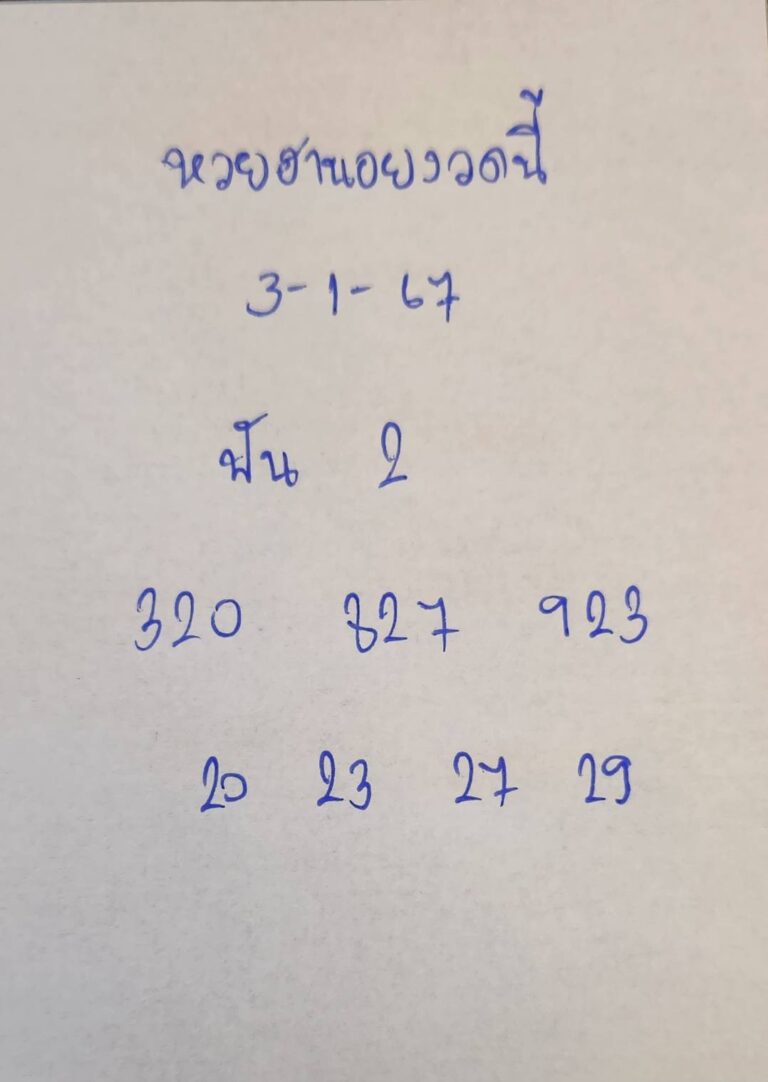 หวยฮานอยงวดนี้
3-1-67
ฟัน 2
320 827 923
20 23 27 29